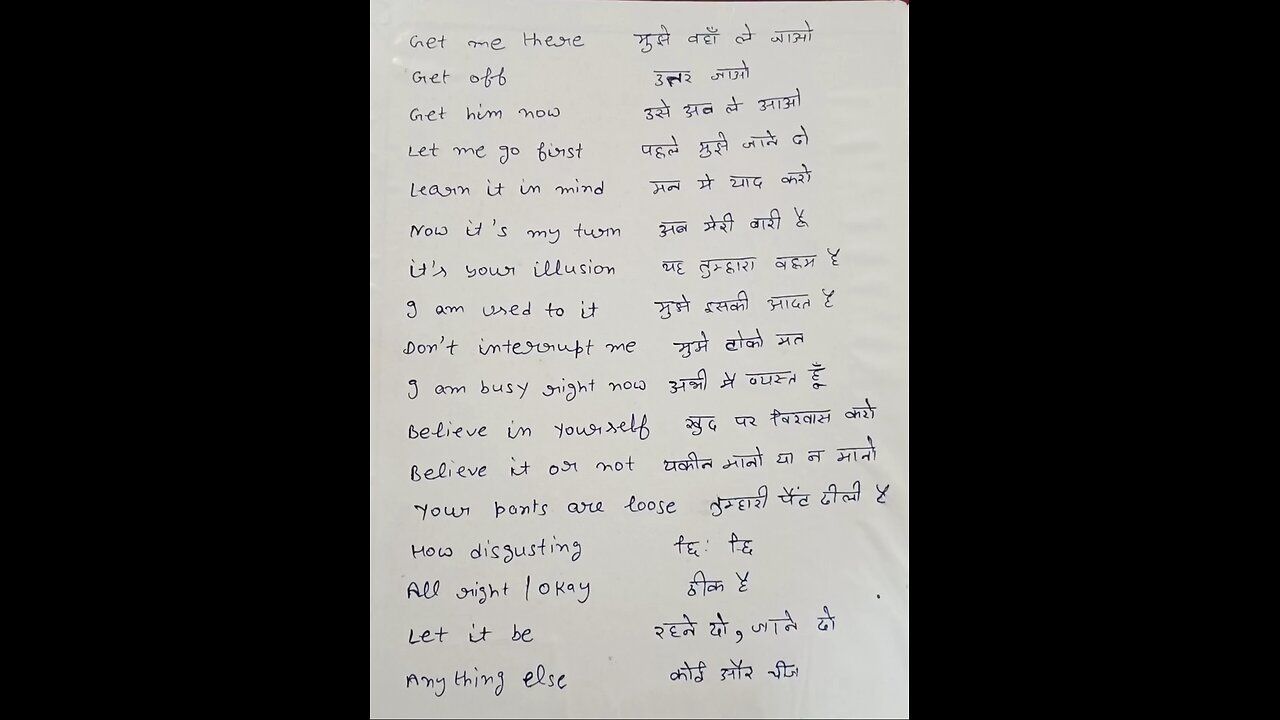 Get me there मुझे वहाँ ले जाओ
Get off उतर जाओ
Get him now उसे अब ले आओ
Let me go first पहले मुझे जाने दो
Learn it in mind मन मे याद करो
Now it's my turn अब मेरी बारी है
it's your illusion यह तुम्हारा वहम है
I am used to it मुझे इसकी आदत है
Don't interrupt me मुझे टोको मत
I am busy right now अभी मै व्यस्त हूँ
Believe in yourself खुद पर विश्वास करो
Believe it or not यकीन मानो या न मानो
Your pants are loose तुम्हारी पैंट ढीली है
How disgusting छि: छि
All right / Okay ठीक है
Let it be रहने दो, जाने दो
Anything else कोई और चीज